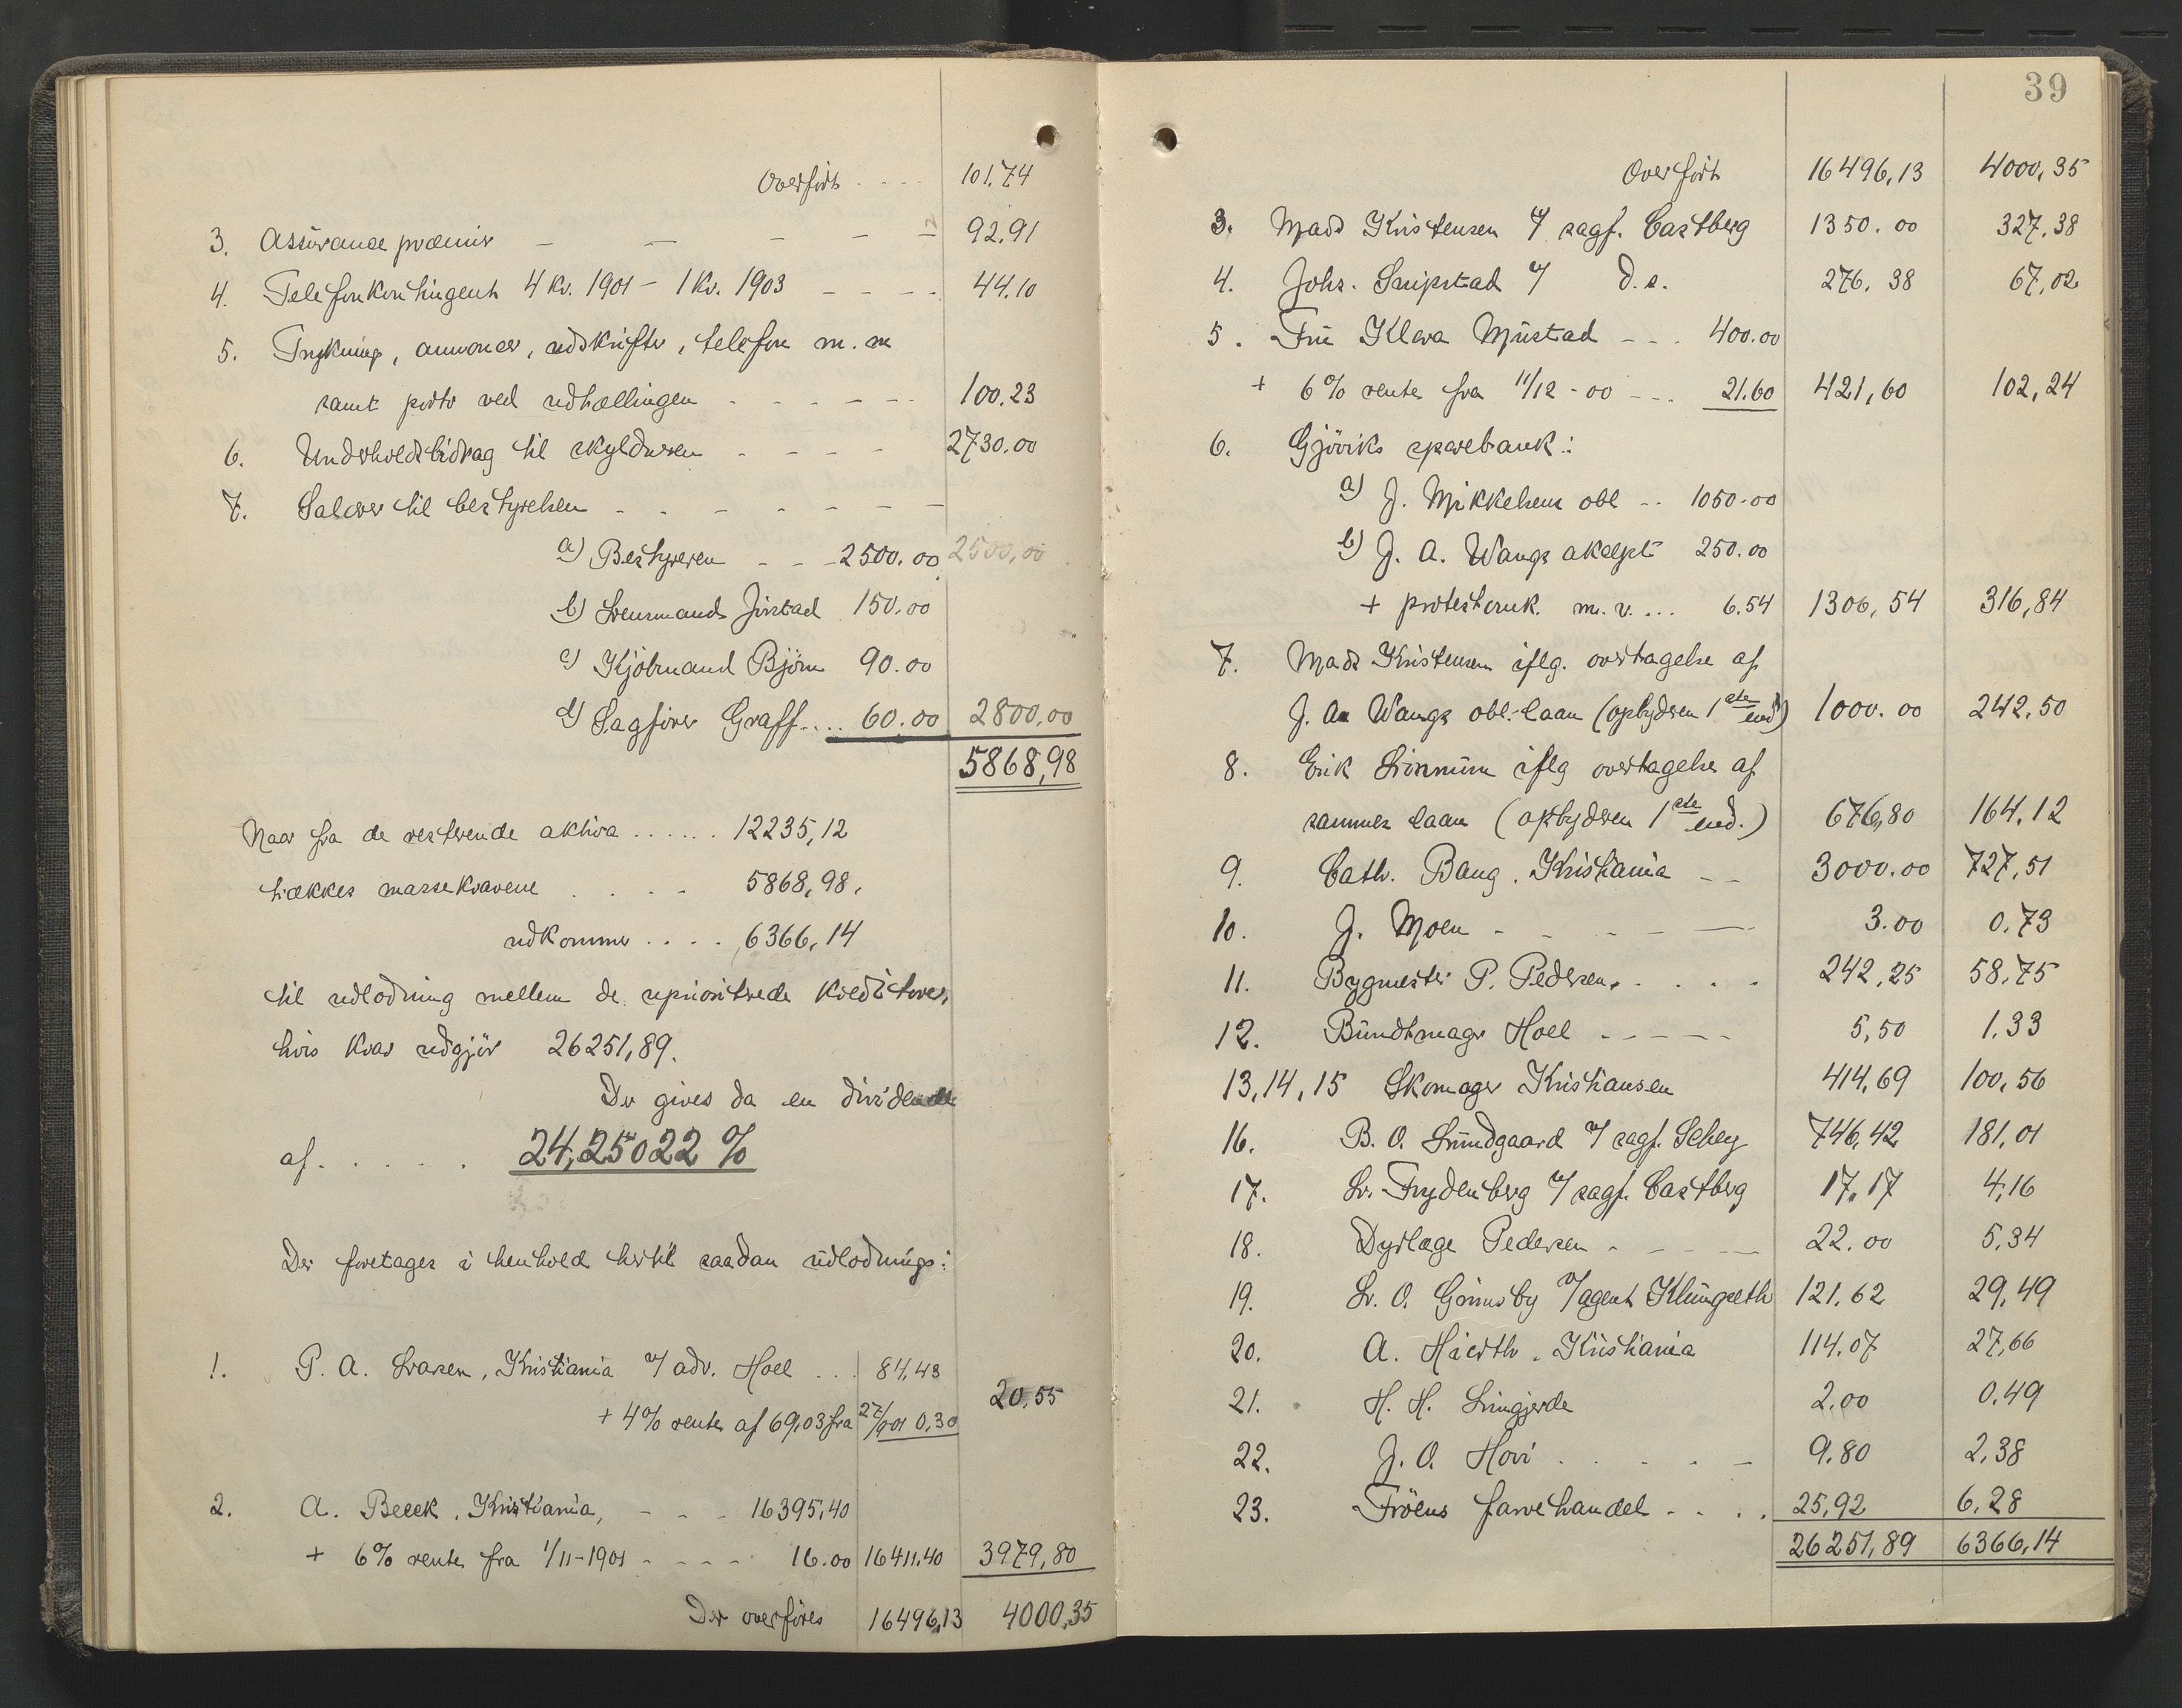 Overført .... 101.74
3. Assurancepræmier – – – – – 92.91
4. Telefonkontingent 4 Kv. 1901 – 1 Kv. 1903 – – – – 44.10
5. Trykning, annoncer, udskrifter, telefon m. m
samt porto ved udtællingen – – – – – – 100.23
6. Underholdsbidrag til skyldneren – – – – – 2730.00
7. Salærer til bestyrelsen – – – – – – –
a) Bestyreren – – – 2500.00 2500,00
b) Lensmand Jirstad 150.00
c) Kjøbmand Bjørn 90.00
d) Sagfører Graff .... 60.00 2800,00
5868,98
Naar fra de resterende aktiva ...... 12235,12
trækkes massekravene .... 5868,98.
udkommer .... 6366,14
til udlodning mellem de upriorterede kreditorer,
hvis krav udgjør 26251,89.
Der gives da en dividende
af ..... 24,25022 %
Der foretages i henhold hertil saadan udlodning:
1. P. A. Larsen, Kristiania v/ adv. Hoel ... 84,43
+ 4% rente af 69,03 fra 27/9 01 0,30 20,55
2. A. Beeck, Kristiania, – – – 16395,40
+ 6% rente fra 1/11-1901 – – – – 16.00 16411.40 3979,80
Der overføres 16496,13 4000,35
39
Overført 16496,13 4000,35
3. Mads Kristensen v/ sagf. Castberg 1350.00 327,38
4. Johs. Snipstad v/ d.s. 276,38 67,02
5. Fru Klara Mustad – – – 400.00
+ 6% rente fra 11/12-00 – – – 21.60 421,60 102,24
6. Gjøviks sparebank:
a) J. Mikkelsens obl – – 1050.00
b) J. A. Wangs aksept 250.00
+ protestomk. m. v. ... 6.54 1306,54 316,84
7. Mads Kristensen iflg. overtagelse af
J. A. Wangs obl.-laan (opbyderen 1ste end) 1000.00 242,50
8. Erik Linnum iflg overtagelse af
sammes laan (opbyderen 1ste end.) 676,80 164,12
9. Cath. Bang, Kristiania – – 3000.00 727,51
10. J. Moen – – – – – 3.00 0.73
11. Bygmester P. Pedersen, .... 242,25 58,75
12. Bundtmager Hoel – – – – – 5,50 1.33
13, 14, 15 Skomager Kristiansen 414,69 100,56
16. B. O. Lundgaard v/ sagf. Schey 746,42 181,01
17. L. Frydenberg v/ sagf. Castberg 17,17 4,16
18. Dyrlæge Pedersen – – – – 22.00 5,34
19. L. O. Gørnsby v/ agent Klungseth 121.62 29,49
20. A. Hierth, Kristiania 114.07 27,66
21. H. H. Lingjerde 2.00 0.49
22. J. O. Hovi ..... 9.80 2,38
23. Frøens farvehandel .... 25,92 6.28
26251,89 6366,14